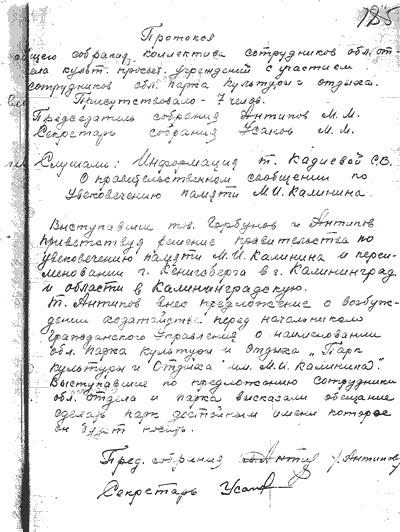 185
Протокол
общего собрания коллектива сотрудников обл. от-
дела культ. просвет. учреждений с участием
сотрудников обл. парка культуры и отдыха.
Присутствовало - 7 человек.
Председатель собрания Антипов М. М.
Секретарь собрания Усанов М. М.
Слушали: Информация т. Кадиевой С.В.
О правительственном сообщении по
увековечению памяти М.И. Калинина.
Выступавшии тов. Горбунов и Антипов
приветствуя решение правительства по
увековечению памяти М.И. Калинина и пере-
меновании г. Кенигсберга в г. Калининград
и области в Калининградскую.
т. Антипов внес предложение о возбуж-
дении ходатайства перед начальником
Гражданского Управления о наименовании
обл. парка культуры и отдыха „Парк
культуры и отдыха им. М.И. Калинина".
Выступавшие по предложению сотрудники
обл. отдела и парка высказали обещание
сделать парк достойным имени которое
он будет носить.
Пред. собрания /Антипов/
Секретарь